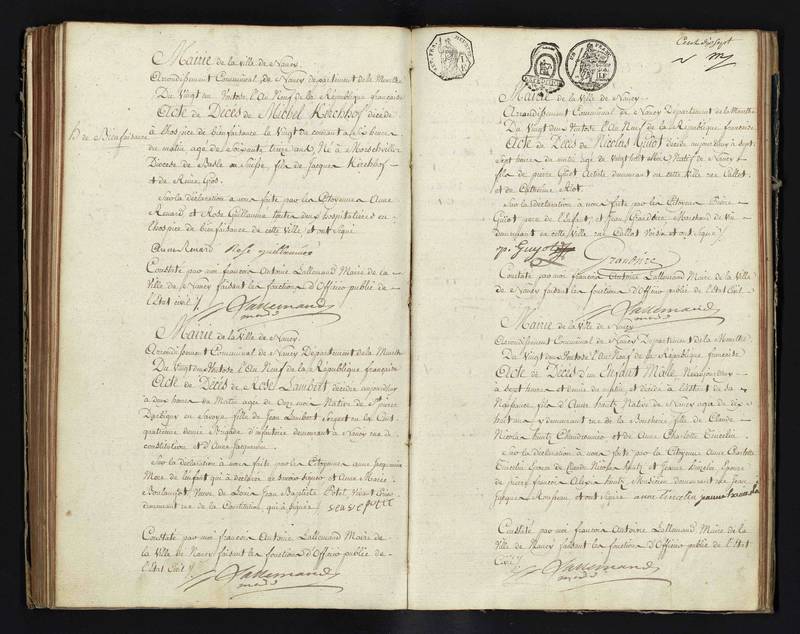 Mairie de la ville de Nancy.
Arrondissement Communal de Nancy departement de la Meurthe
Du Vingt un Ventose l'An Neuf de la République française
Acte de Décès de Michel Kirchhof décédé
h. de Bienfaisance
à l'hospice de bienfaisance le Vingt du courant à
du matin agé de Soixante treize ans, Né à
Diocese de Basle en Suisse, fils de Jacques Kirchhof
et de Reine
Sur la déclaration à nous faite par les Citoyennes Anne
Renard et Rose Guillaumé toutes deux hospitalieres en
l'hospice de bienfaisance de cette Ville et ont signé
Anne Renard Rose guillaumé
Constaté par moi françois Antoine Lallemand Maire de la
Ville de Nancy faisant les fonctions d'Officier public de
l'Etat civil
Lallemand
Mairie de la Ville de Nancy.
Arrondissement Communal de Nancy Département de la Meurthe
Du Vingt un Ventose l'An Neuf de la République française
Acte de Décès de Rose Lambert décédée aujourdhuy
à deux heures du Matin agée de Onze mois Native de
en Savoye, fille de Jean Lambert Sergent en la Cent
quatrieme demie Brigade d'infanterie demeurant à Nancy rue de
constitution et d'Anne Jacquemin
Sur la déclaration à nous faite par les Citoyennes anne Jacquemin
Mere de l'enfant qui a déclaré ne savoir signer et Anne Marie
Veuve de Jean Baptiste Potel,
demeurant rue de la Constitution qui a signé veuve potel
Constaté par moi françois Antoine Lallemand Maire de
la Ville de Nancy faisant les fonctions d'Officier public de
l'Etat Civil
Lallemand
Cent dix sept
Mairie de la Ville de Nancy.
Arrondissement Communal de Nancy Département de la Meurthe
Du Vingt un Ventose l'An Neuf de la République française
Acte de Décès de Nicolas Guiot décédé aujourdhuy à sept
heures du matin agé de Vingt Natif de Nancy
fils de pierre Guiot Artiste demeurant en cette Ville rue Callot
et de Catherine
Sur la déclaration à nous faite par les Citoyens Pierre
Guiot pere de l'Enfant, et Jean Grandpire Marchand de vin
Demeurant en cette Ville rue Callot Voisin et ont signé
p. Guyot
Grandpire
Constaté par moi françois Antoine Lallemand Maire de la Ville
de Nancy faisant les fonctions d'Officier public de l'Etat Civil
Lallemand
Mairie de la Ville de Nancy
Arrondissement Communal de Nancy Département de la Meurthe
Du Vingt un Ventose l'An Neuf de la République française
Acte de Décès d'un Enfant Male
à sept heures et demie du matin et décédé à l'instant de sa
Naissance, fils d'Anne Native de Nancy agée de dix
huit ans y demeurant rue de la Boucherie fille de Claude
Nicolas Chaudronnier et de Anne Charlotte
Sur la déclaration à nous faite par la Citoyenne Anne Charlotte
Epouse de Claude Nicolas et Jeanne Epouse
de pierre françois Musicien demeurant rue Jean
Jacques Rousseau et ont signé anne
Constaté par moi françois Antoine Lallemand Maire de la
Ville de Nancy faisant les fonctions d'Officier public de l'Etat
Civil
Lallemand